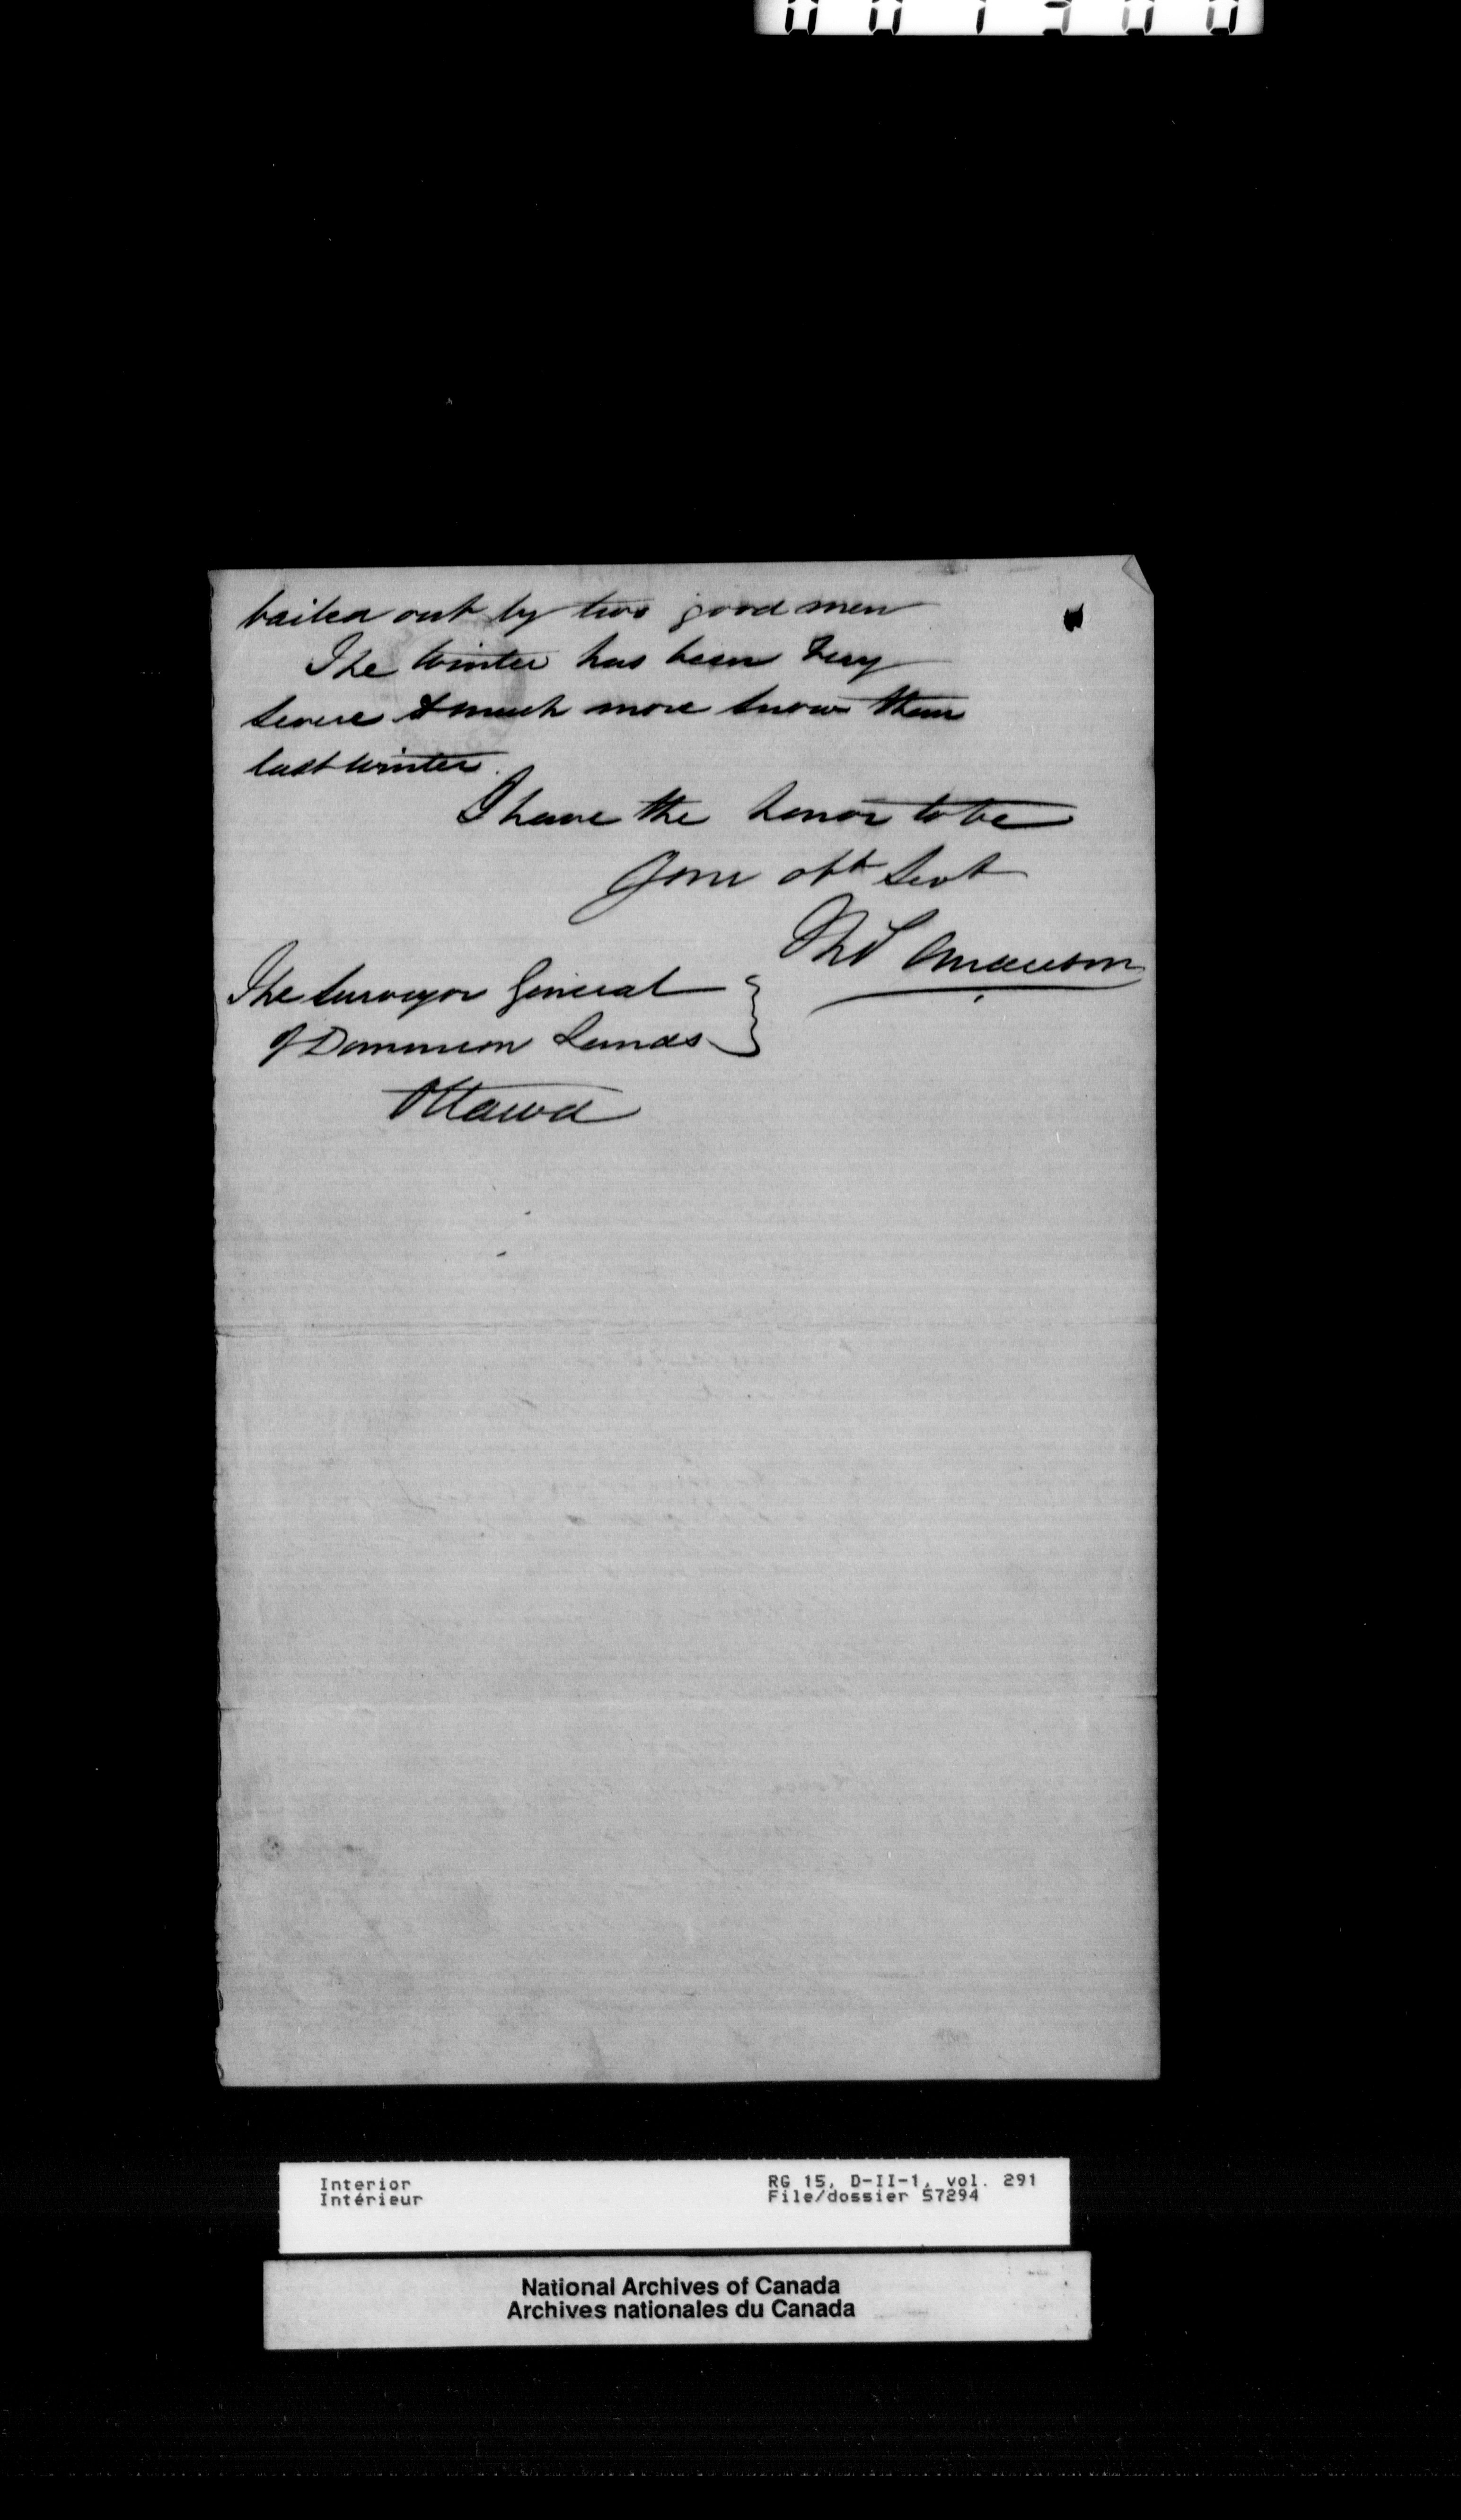 bailed out by two good men
The Winter has been very
severe & much more snow than
last winter.
I have the honor to be
Your obt Servt
Thos Anderson
The Surveyor General
of Dominion Lands
Ottawa
Interior
Intérieur
RG 15, D-II-1, vol. 291
File/dossier 57294
National Archives of Canada
Archives nationales du Canada